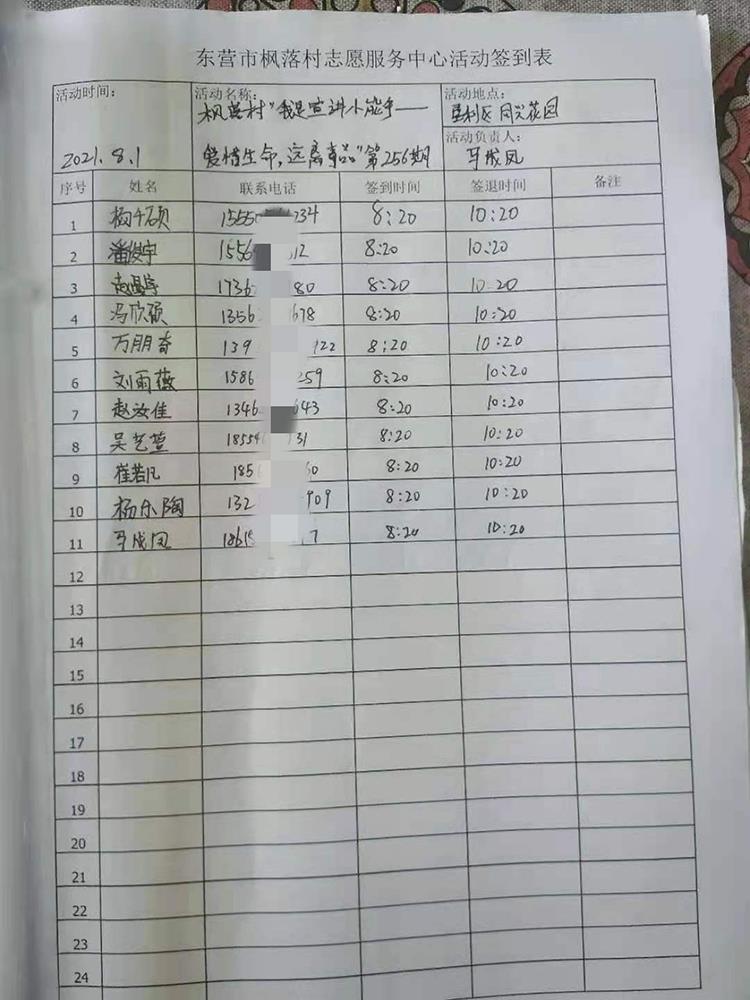 东营市枫落村志愿服务中心活动签到表
活动时间： 2021.8.1
活动名称： 枫落村"我是宣讲小能手——
爱惜生命，远离毒品"第256期
活动地点： 垦利区同兴花园
活动负责人： 马成凤
序号 姓名 联系电话 签到时间 签退时间 备注
1 1555 234 8:20 10:20
2 潘俊宇 1556 12 8:20 10:20
3 1736 80 8:20 10:20
4 冯欣硕 1356 678 8:20 10:20
5 万朋奇 139 122 8:20 10:20
6 刘雨薇 1586 259 8:20 10:20
7 赵汝佳 1346 643 8:20 10:20
8 吴艺萱 1855 31 8:20 10:20
9 崔若凡 185 0 8:20 10:20
10 杨乐陶 132 909 8:20 10:20
11 马成凤 1861 7 8:20 10:20
12
13
14
15
16
17
18
19
20
21
22
23
24